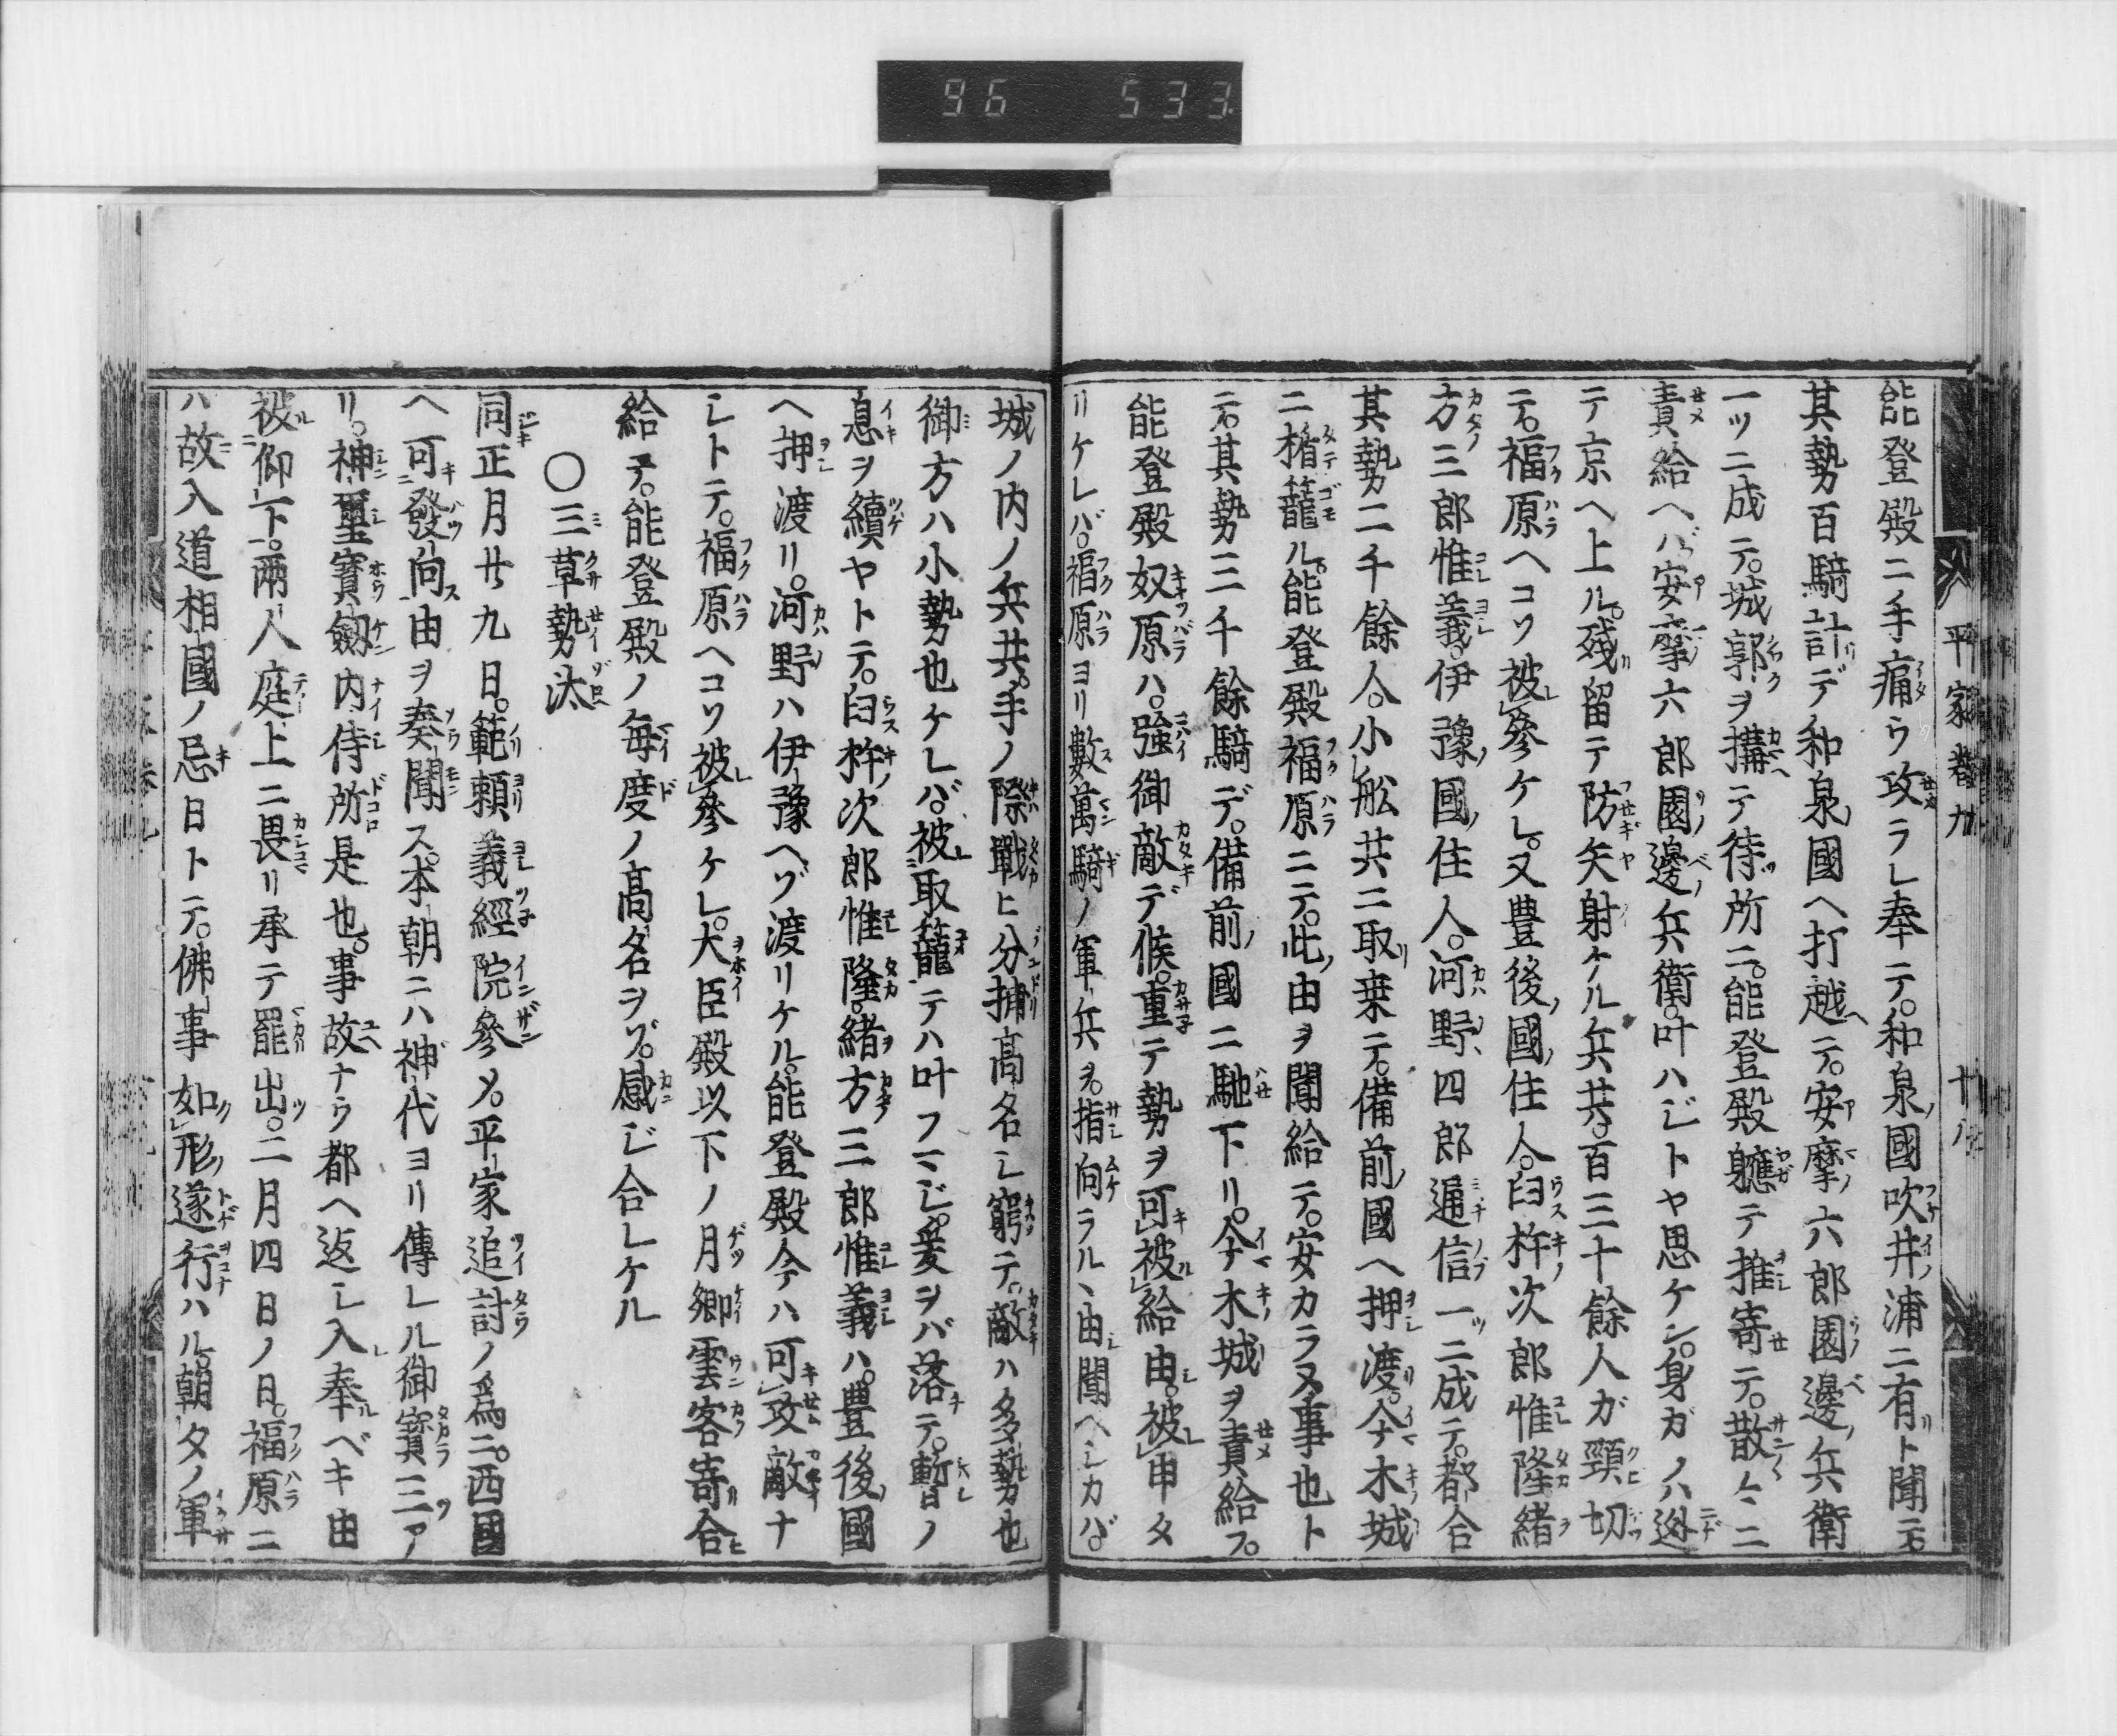 96 533
平家巻九 十八
能登殿ニ手痛ウ攻ラレ奉テ。和泉ノ國吹井ノ浦ニ有リト聞ヱ
其勢百騎計デ和泉ノ國ヘ打越ヘテ。安摩ノ六郎園邊ノ兵衛
一ツニ成テ。城郭ヲ搆テ待ツ所ニ。能登殿軈テ推寄セテ。散々ニ
責給ヘバ。安摩ノ六郎園ノ邊ノ兵衛。叶ハジトヤ思ケン。身ガノハ迯
テ京ヘ上ル。殘リ留テ防矢射ケル兵共。百三十餘人ガ頸切
テ。福原ヘコソ被レ參ケレ。又豊後ノ國ノ住人。臼杵ノ次郎惟隆緒
方ノ三郎惟義。伊豫ノ國ノ住人。河野ノ四郎通信一ツニ成テ。都合
其勢二千餘人。小舩共ニ取リ乗テ。備前ノ國ヘ押渡リ。今木ノ城
ニ楯籠ル。能登殿福原ニテ。此ノ由ヲ聞給テ。安カラヌ事也ト
テ。其勢三千餘騎デ。備前ノ國ニ馳下リ。今木ノ城ヲ責給フ。
能登殿奴原ハ。強御敵デ候。重テ勢ヲ可被給由。被申タ
リケレバ。福原ヨリ數萬騎ノ軍兵ヲ。指向ラルヽ由聞ヘシカバ。
城ノ内ノ兵共。手ノ際戰ヒ分捕高名シ窮テ。敵ハ多勢也
御方ハ小勢也ケレバ。被取籠テハ叶フマジ。爰ヲバ落テ。暫シノ
息ヲ續ヤトテ。臼杵ノ次郎惟隆。緒方三郎惟義ハ。豊後ノ國
ヘ押渡リ。河野ハ伊豫ヘゾ渡リケル。能登殿今ハ可攻敵ナ
シトテ。福原ヘコソ被參ケレ。大臣殿以下ノ月卿雲客寄リ合ヒ
給テ。能登殿ノ毎度ノ高名ヲゾ。感ジ合レケル
○三草勢汰
同正月廿九日。範頼義經院參メ。平家追討ノ爲ニ。西國
ヘ可發向ス由ヲ奏聞ス。本朝ニハ神代ヨリ傳レル御寳三ツア
リ。神璽寳劔内侍所是也。事故ナウ都ヘ返シ入レ奉ルベキ由
被仰下。兩人庭上ニ畏リ承テ罷出ツ。二月四日ノ日。福原ニ
ハ故入道相國ノ忌日トテ。佛事如形遂行ハル。朝タノ軍